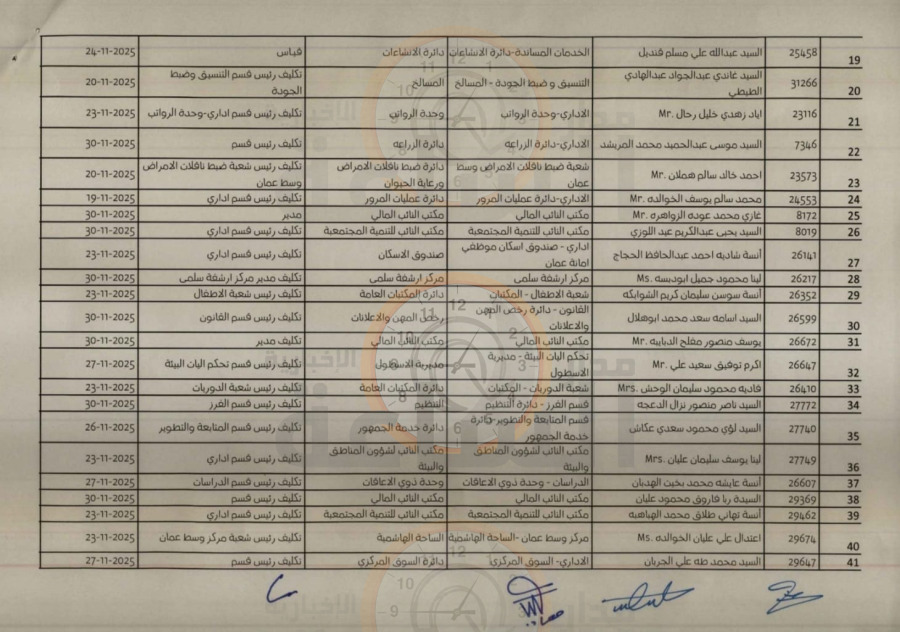 19 25458 السيد عبدالله علي مسلم قنديل الخدمات المساندة-دائرة الانشاءات دائرة الانشاءات قياس 24-11-2025
20 31266 السيد غاندي عبدالجواد عبدالهادي الطيطي التنسيق و ضبط الجودة - المسالخ المسالخ تكليف رئيس قسم التنسيق وضبط الجودة 20-11-2025
21 23116 اياد زهدي خليل رحال Mr. الاداري-وحدة الرواتب وحدة الرواتب تكليف رئيس قسم اداري-وحدة الرواتب 23-11-2025
22 7346 السيد موسى عبدالحميد محمد المريشد الاداري-دائرة الزراعه دائرة الزراعه تكليف رئيس قسم 30-11-2025
23 23573 احمد خالد سالم هملان Mr. شعبة ضبط ناقلات الامراض وسط عمان دائرة ضبط ناقلات الامراض ورعاية الحيوان تكليف رئيس شعبة ضبط ناقلات الامراض وسط عمان 20-11-2025
24 24553 محمد سالم يوسف الخوالده Mr. الاداري-دائرة عمليات المرور دائرة عمليات المرور تكليف رئيس قسم اداري 19-11-2025
25 8172 غازي محمد عوده الزواهره Mr. مكتب النائب المالي مكتب النائب المالي مدير 30-11-2025
26 8019 السيد يحيى عبدالكريم عبد اللوزي مكتب النائب للتنمية المجتمعية مكتب النائب للتنمية المجتمعية تكليف رئيس قسم اداري 30-11-2025
27 26141 آنسة شاديه احمد عبدالحافظ الحجاج اداري - صندوق اسكان موظفي امانة عمان صندوق الاسكان تكليف رئيس قسم اداري 23-11-2025
28 26217 لينا محمود جميل ابودبسه Ms. مركز ارشفة سلمى مركز ارشفة سلمى تكليف مدير مركز ارشفة سلمى 30-11-2025
29 26352 آنسة سوسن سليمان كريم الشوابكه شعبة الاطفال - المكتبات دائرة المكتبات العامة تكليف رئيس شعبة الاطفال 23-11-2025
30 26599 السيد اسامه سعد محمد ابوهلال القانون - دائرة رخص المهن والاعلانات رخص المهن والاعلانات تكليف رئيس قسم القانون 30-11-2025
31 26672 يوسف منصور مفلح الدبايبه Mr. مكتب النائب المالي مكتب النائب المالي تكليف مدير 30-11-2025
32 26647 اكرم توفيق سعيد علي Mr. تحكم اليات البيئة - مديرية الاسطول مديرية الاسطول تكليف رئيس قسم تحكم اليات البيئة 27-11-2025
33 26410 فاديه محمود سليمان الوحش Mrs. شعبة الدوريات - المكتبات دائرة المكتبات العامة تكليف رئيس شعبة الدوريات 23-11-2025
34 27772 السيد ناصر منصور نزال الدعجه قسم الفرز - دائرة التنظيم التنظيم تكليف رئيس قسم الفرز 30-11-2025
35 27740 السيد لؤي محمود سعدي عكاش قسم المتابعة والتطوير-دائرة خدمة الجمهور دائرة خدمة الجمهور تكليف رئيس قسم المتابعة والتطوير 26-11-2025
36 27749 لينا يوسف سليمان عليان Mrs. مكتب النائب لشؤون المناطق والبيئة مكتب النائب لشؤون المناطق والبيئة تكليف رئيس قسم اداري 23-11-2025
37 26607 آنسة عايشه محمد بخيت الهدبان الدراسات - وحدة ذوي الاعاقات وحدة ذوي الاعاقات تكليف رئيس قسم الدراسات 27-11-2025
38 29369 السيدة ربا فاروق محمود عليان مكتب النائب المالي مكتب النائب المالي تكليف رئيس قسم 30-11-2025
39 29462 آنسة تهاني طلاق محمد الهباهبه مكتب النائب للتنمية المجتمعية مكتب النائب للتنمية المجتمعية تكليف رئيس قسم اداري 23-11-2025
40 29674 اعتدال علي عليان الخوالده Ms. مركز وسط عمان -الساحة الهاشمية الساحة الهاشمية تكليف رئيس شعبة مركز وسط عمان 23-11-2025
41 29647 السيد محمد طه علي الجريان الاداري- السوق المركزي دائرة السوق المركزي تكليف رئيس قسم 27-11-2025